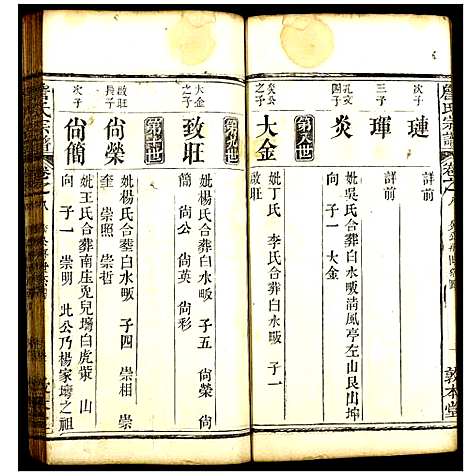 詹氏宗譜
卷之八
敦本堂
次子
璉
詳前
三子
琿
詳前
孔文四子
炎
妣吳氏合葬白水畈清風亭左山艮山坤
向 子一 大金
第八世
炎公之子
大金
妣丁氏 李氏合葬白水畈 子一
致旺
第九世
大金之子
致旺
妣楊氏合葬白水畈 子五 尙榮 尙
簡 尙公 尙英 尙彩
第十世
致旺長子
尙榮
妣楊氏合塟白水畈 子四 崇相 崇
奎 崇照 崇哲
次子
尙簡
妣王氏合葬南庄兎兒塆白虎嶺 山
向 子一 崇明 此公乃楊家塆之祖
詹氏宗譜
卷之八